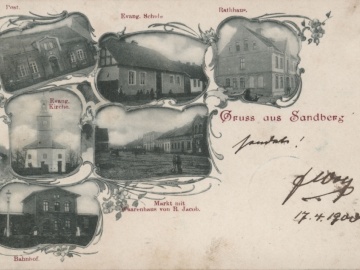 Post.
Evang. Schule.
Rathhaus.
Evang.
Kirche.
Gruss aus Sandberg
Markt mit
Waarenhaus von R. Jacob.
17.4.1900
Bahnhof.